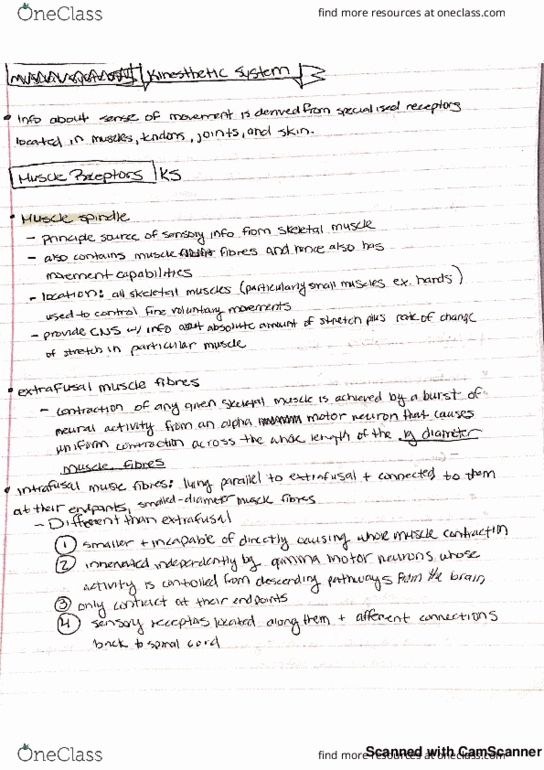 OneClass
find more resources at oneclass.com
Kinesthetic System
• Info about sense of movement is derived from specialised receptors
located in muscles, tendons, joints, and skin.
Muscle Receptors KS
• Muscle spindle
- principle source of sensory info from skeletal muscle
- also contains muscle fibres and hence also has
movement capabilities
- location: all skeletal muscles (particularly small muscles ex. hands)
used to control fine voluntary movements
- provide CNS w/ info abt absolute amount of stretch plus rate of change
of stretch in particular muscle
• extrafusal muscle fibres
- contraction of any given skeletal muscle is achieved by a burst of
neural activity from an alpha motor neuron that causes
uniform contraction across the whole length of the lg diameter
muscle fibres
• Intrafusal muscle fibres: lying parallel to extrafusal + connected to them
at their endpoints, smaller-diameter muscle fibres
- Different than extrafusal
① smaller + incapable of directly causing whole muscle contraction
② innervated independently by gamma motor neurons, whose
activity is controlled from descending pathways from the brain
③ only contract at their endpoints
④ sensory receptors located along them + afferent connections
back to spinal cord
OneClass
find more resources at oneclass.com
Scanned with CamScanner